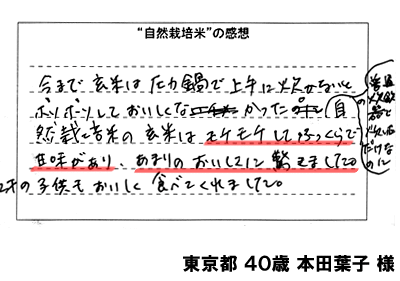 “自然栽培米”の感想
今まで玄米は圧力鍋で上手に炊かないと
ボソボソしておいしくなかった 自
然栽培玄米の玄米はモチモチしてふっくらで
甘味があり、あまりのおいしさに驚きました。
2才の子供もおいしく食べてくれました。
普通の
炊飯
器で
炊いた
だけな
のに
東京都 40歳 本田葉子 様